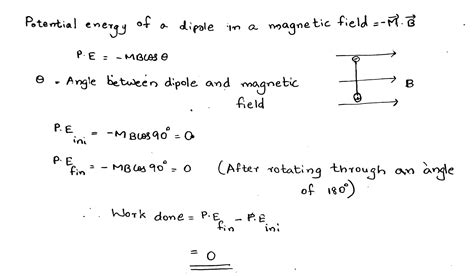 Potential energy of a dipole in a magnetic field = -M⃗.B⃗
P.E = -MBcosθ
θ - Angle between dipole and magnetic
field
B
P.E ini = -MBcos90° = 0
P.E fin = -MBcos90° = 0 (After rotating through an angle
of 180°)
∴ Work done = P.E fin - P.E ini
= 0